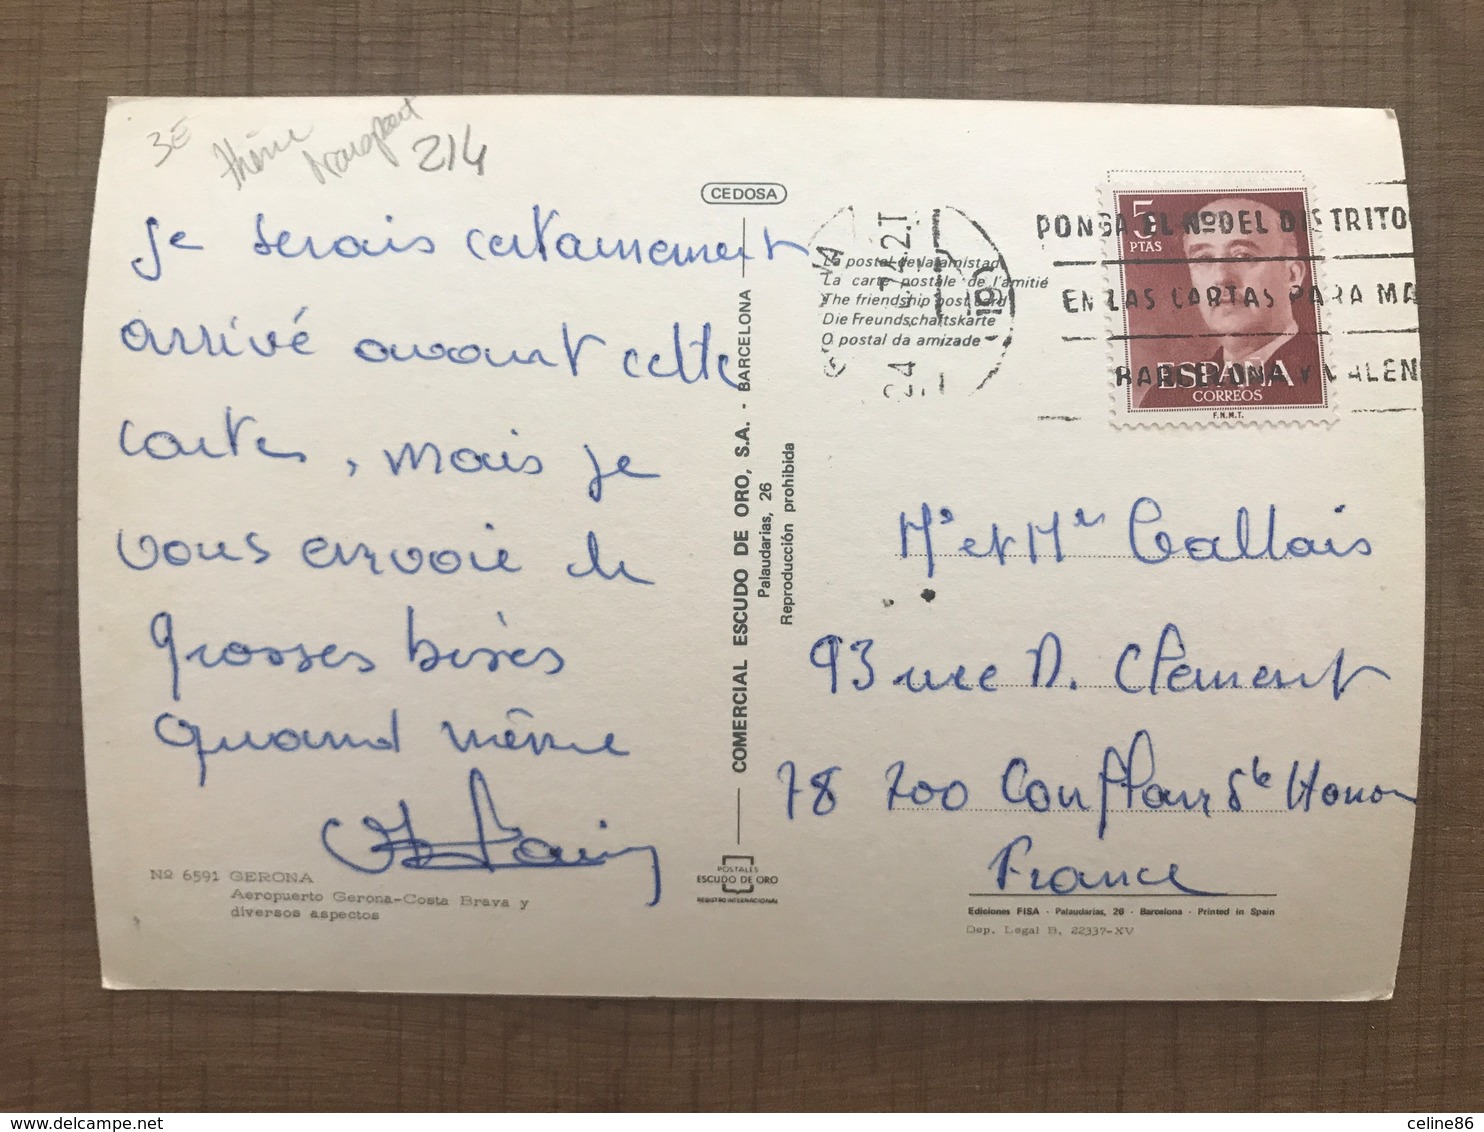 3E
thème
214
CEDOSA
Je serais certainement
arrivé avant cette
carte, mais je
vous envoie de
grosses bises
quand même
Nº 6591 GERONA
Aeropuerto Gerona-Costa Brava y
diversos aspectos
COMERCIAL ESCUDO DE ORO, S.A. - BARCELONA
Palaudarias, 26
Reproducción prohibida
POSTALES
ESCUDO DE ORO
REGISTRO INTERNACIONAL
La postal de la amistad
La carte postale de l'amitié
The friendship post card
Die Freundschaftskarte
O postal da amizade
PONGA EL Nº DEL DISTRITO
EN LAS CARTAS PARA MA
BARCELONA Y VALEN
5
PTAS
ESPAÑA
CORREOS
F.N.M.T.
Mr et Mme Gallais
93 rue N. Clement
78 700 Conflans Ste Honor
France
Ediciones FISA - Palaudarias, 26 - Barcelona - Printed in Spain
Dep. Legal B. 22337-XV
delcampe.net
celine86